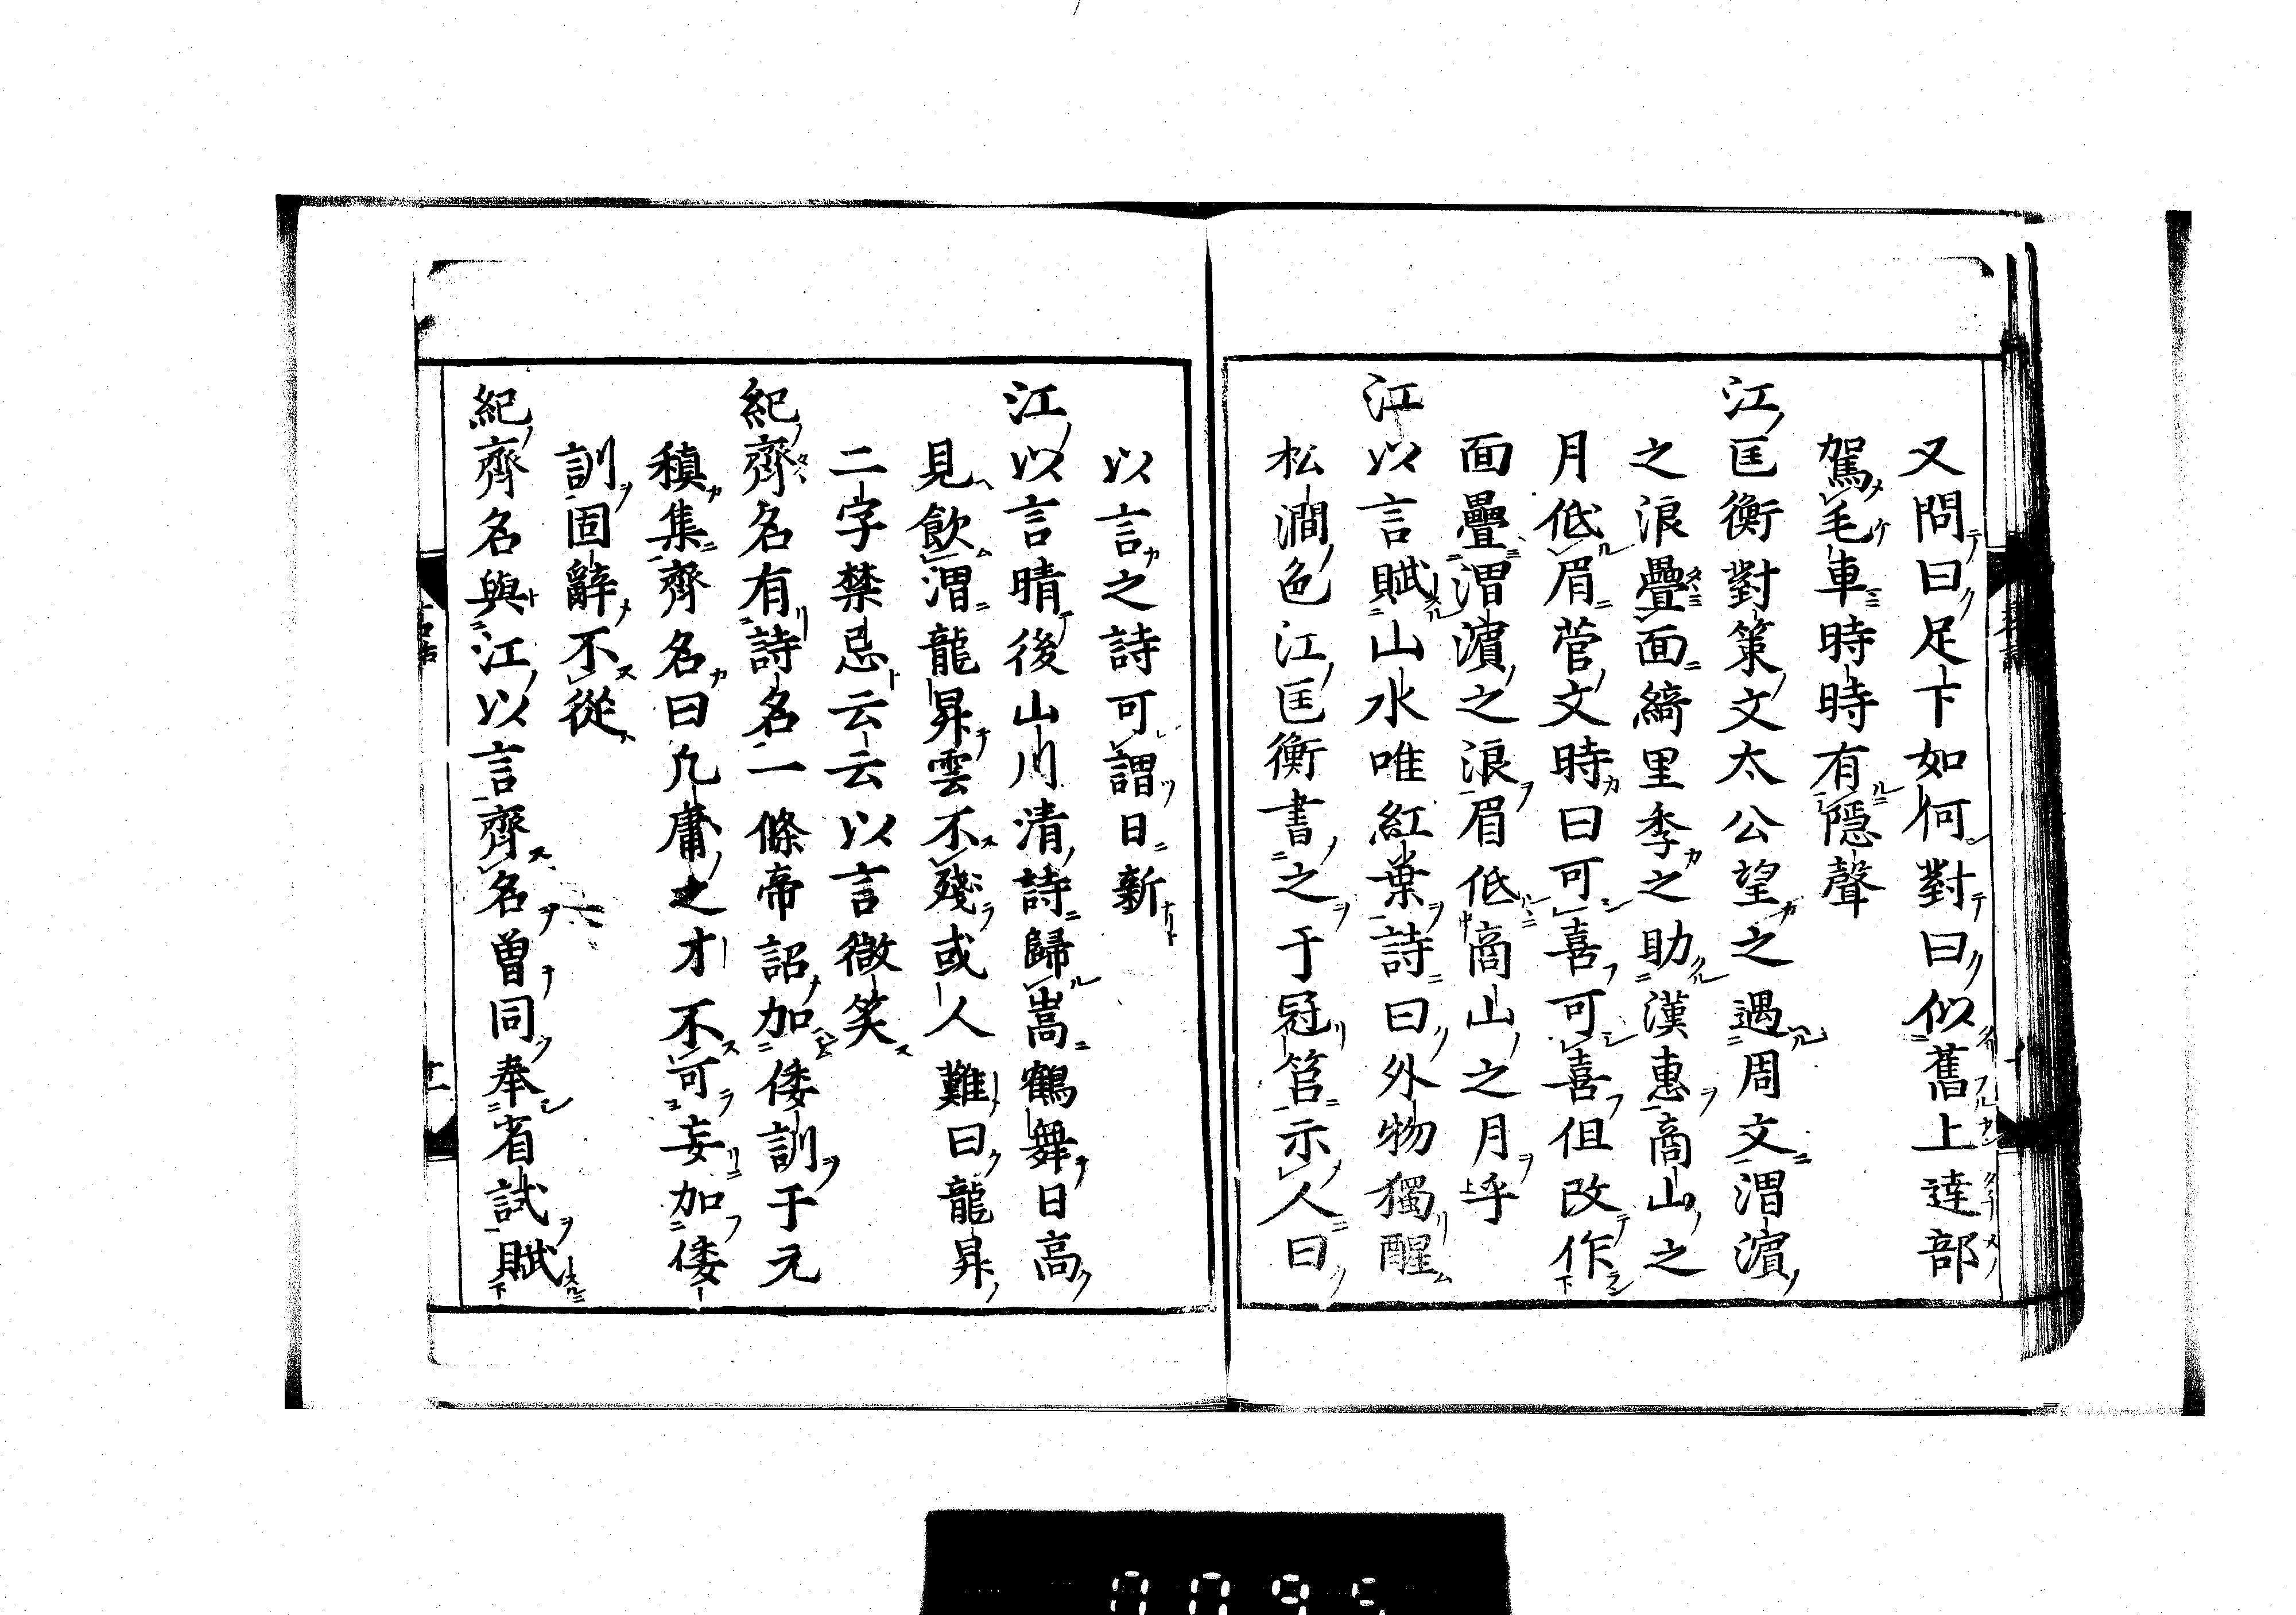 又問曰足下如何對曰似舊上達部
駕毛車時時有隱聲
江匡衡對策文太公望之遇周文渭濱
之浪疊面綺里季之助漢惠商山之
月低眉菅文時曰可喜可喜但改作
面疊渭濱之浪眉低商山之月乎
江以言賦山水唯紅葉詩曰外物獨醒
松澗色江匡衡書之于冠筥示人曰
以言之詩可謂日新
江以言晴後山川清詩歸嵩鶴舞日高
見飲渭龍昇雲不殘或人難曰龍昇
二字禁忌云云以言微笑
紀齊名有詩名一條帝詔加倭訓于元
稹集齊名曰凡庸之才不可妄加倭
訓固辭不從
紀齊名與江以言齊名曾同奉省試賦